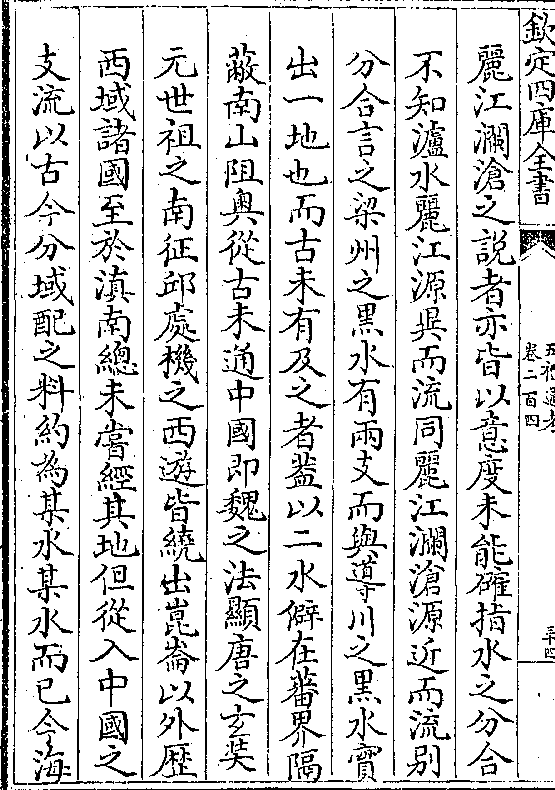 欽定四庫全書
五禮通考
卷二百四
三十四
麗江瀾滄之說者亦皆以意度未能確指水之分合
不知瀘水麗江源異而流同麗江瀾滄源近而流别
分合言之梁州之黑水有兩支而與導川之黑水實
出一地也而古未有及之者葢以二水僻在蕃界隔
蔽南山阻奥從古未通中國即魏之法顯唐之玄奘
元世祖之南征邱處機之西遊皆繞出崑崙以外歴
西域諸國至於滇南總未嘗經其地但從入中國之
支流以古今分域配之料約為某水某水而已今海